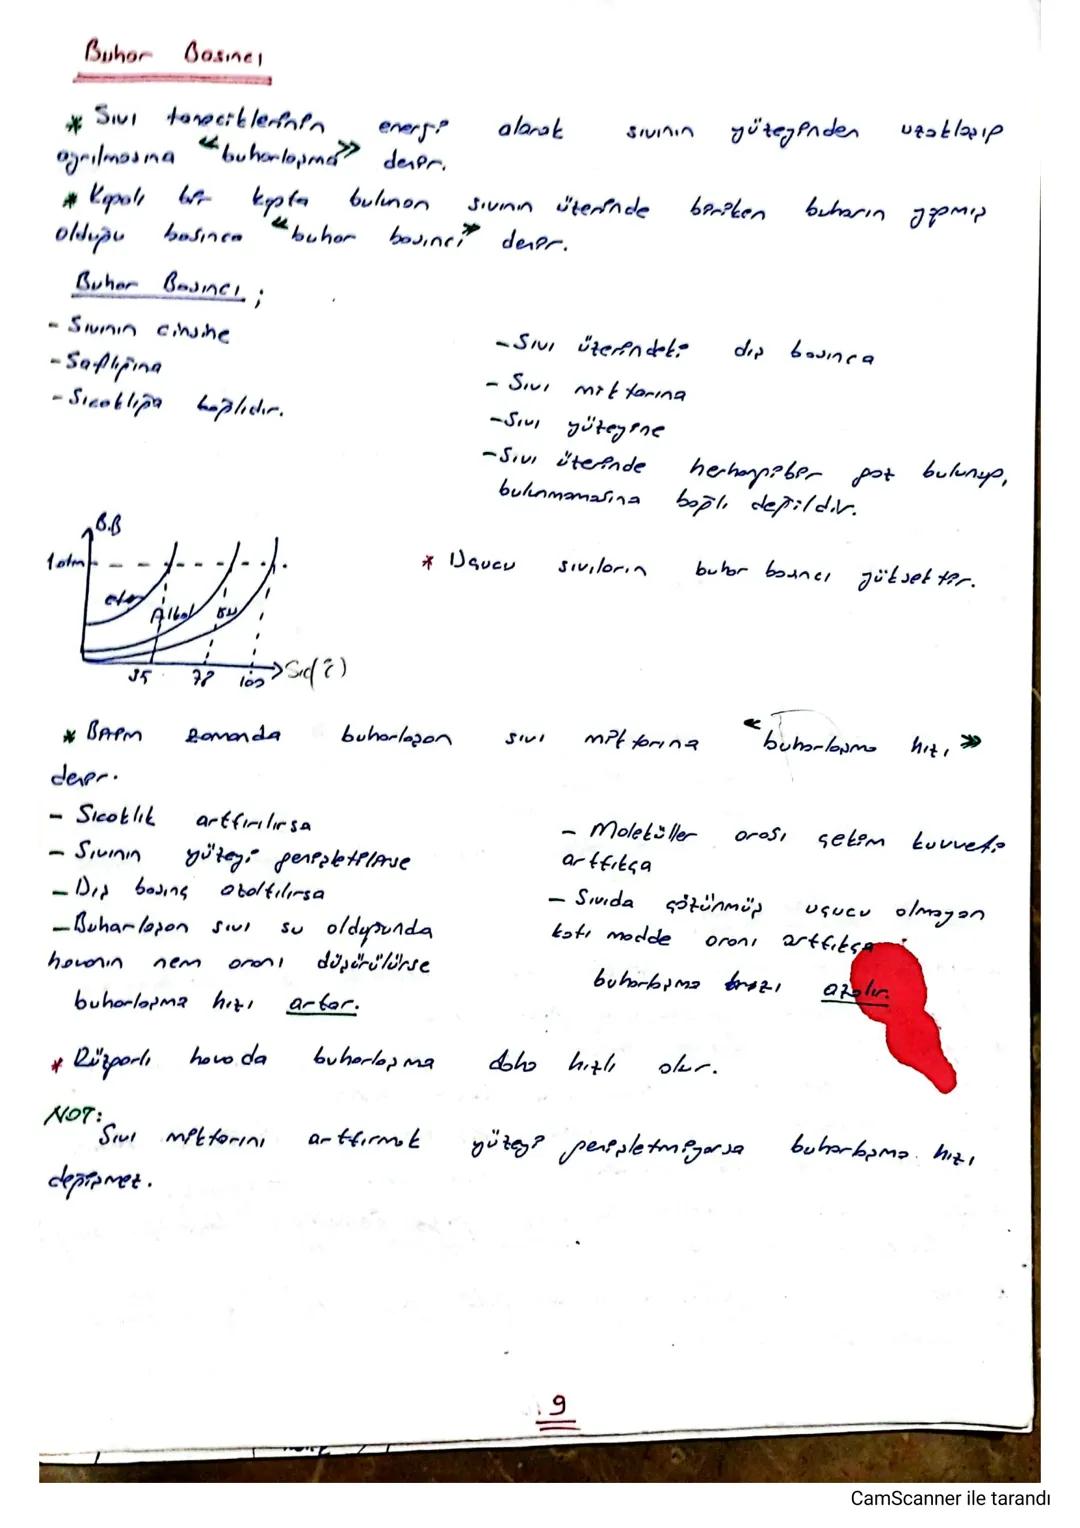 Buhar Basıncı
* Sıvı taneciklerinin enerji alarak sıvının yüzeyinden uzaklaşıp
ayrılmasına "buharlaşma" denir.
* Kapalı bir kapta bulunan sıvının üzerinde biriken buharın yapmış
olduğu basınca "buhar basıncı" denir.
Buhar Basıncı ;
- Sıvının cinsine
- Saflığına
- Sıcaklığa bağlıdır.
- Sıvı üzerindeki dış basınca
- Sıvı miktarına
- Sıvı yüzeyine
- Sıvı üzerinde herhangibir gaz bulunup,
bulunmamasına bağlı değildir.
B.B
1 atm
eter
Alkol
su
35
78
100
Sıc(°C)
* Uçucu sıvıların buhar basıncı yüksektir.
* Birim zamanda buharlaşan sıvı miktarına "buharlaşma hızı"
denir.
- Sıcaklık arttırılırsa
- Sıvının yüzeyi genişletilirse
- Dış basınç azaltılırsa
- Buharlaşan sıvı su olduğunda
havanın nem oranı düşürülürse
buharlaşma hızı artar.
- Moleküller arası çekim kuvveti
arttıkça
- Sıvıda çözünmüş uçucu olmayan
katı madde oranı arttıkça
buharlaşma hızı azalır.
* Rüzgarlı havada buharlaşma daha hızlı olur.
NOT:
Sıvı miktarını arttırmak yüzeyi genişletmiyorsa buharlaşma hızı
değişmez.
9
CamScanner ile tarandı